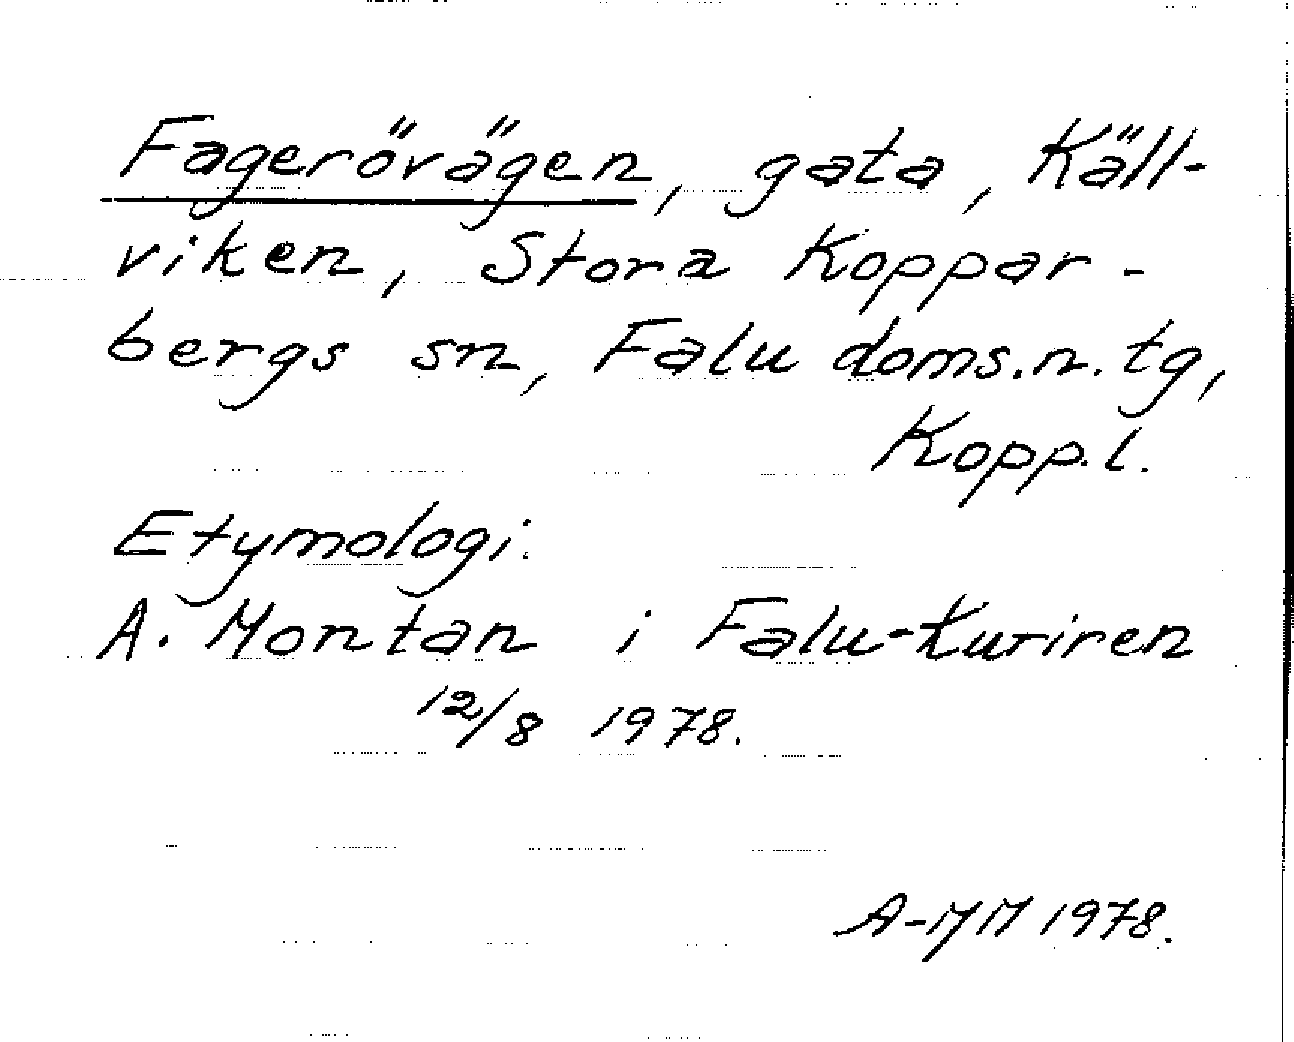 Fagerövägen, gata, Käll-
viken, Stora Koppar-
bergs sn, Falu doms.n. tg,
Kopp.l.
Etymologi.
A. Montan i Falu-Kuriren
12/8 1978.
1978.